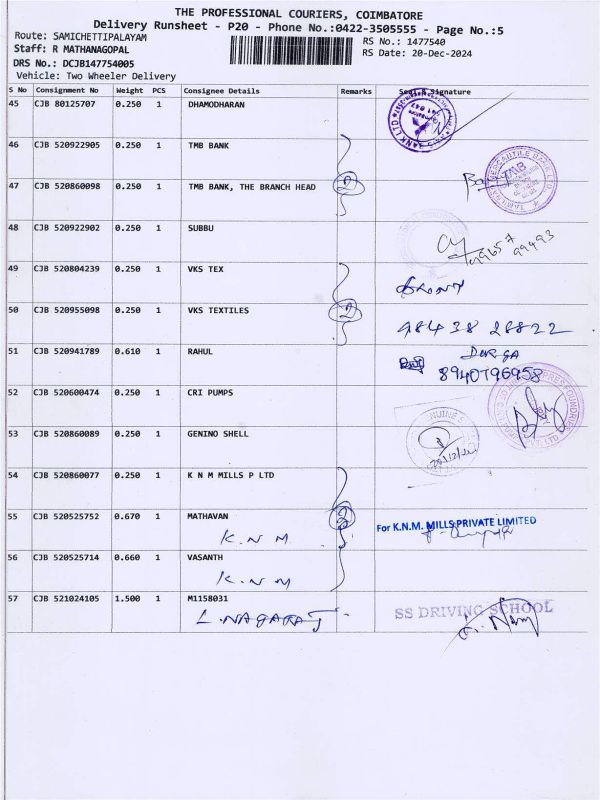 THE PROFESSIONAL COURIERS, COIMBATORE
Delivery Runsheet - P20 - Phone No.:0422-3505555 - Page No.:5
Route: SAMICHETTIPALAYAM
RS No.: 1477540
Staff: R MATHANAGOPAL
RS Date: 20-Dec-2024
DRS No.: DCJB147754005
Vehicle: Two Wheeler Delivery
S No Consignment No Weight PCS Consignee Details Remarks Seal & Signature
45 CJB 80125707 0.250 1 DHAMODHARAN
46 CJB 520922905 0.250 1 TMB BANK
47 CJB 520860098 0.250 1 TMB BANK, THE BRANCH HEAD 2
48 CJB 520922902 0.250 1 SUBBU
99657
99493
49 CJB 520804239 0.250 1 VKS TEX
50 CJB 520955098 0.250 1 VKS TEXTILES 2
98438 28822
51 CJB 520941789 0.610 1 RAHUL
DURGA
8940796958
52 CJB 520600474 0.250 1 CRI PUMPS
53 CJB 520860089 0.250 1 GENINO SHELL
54 CJB 520860077 0.250 1 K N M MILLS P LTD
55 CJB 520525752 0.670 1 MATHAVAN
For K.N.M. MILLS PRIVATE LIMITED
K.N.M
56 CJB 520525714 0.660 1 VASANTH
K.N.M
57 CJB 521024105 1.500 1 M1158031
L.NAGARAJ
SS DRIVING SCHOOL